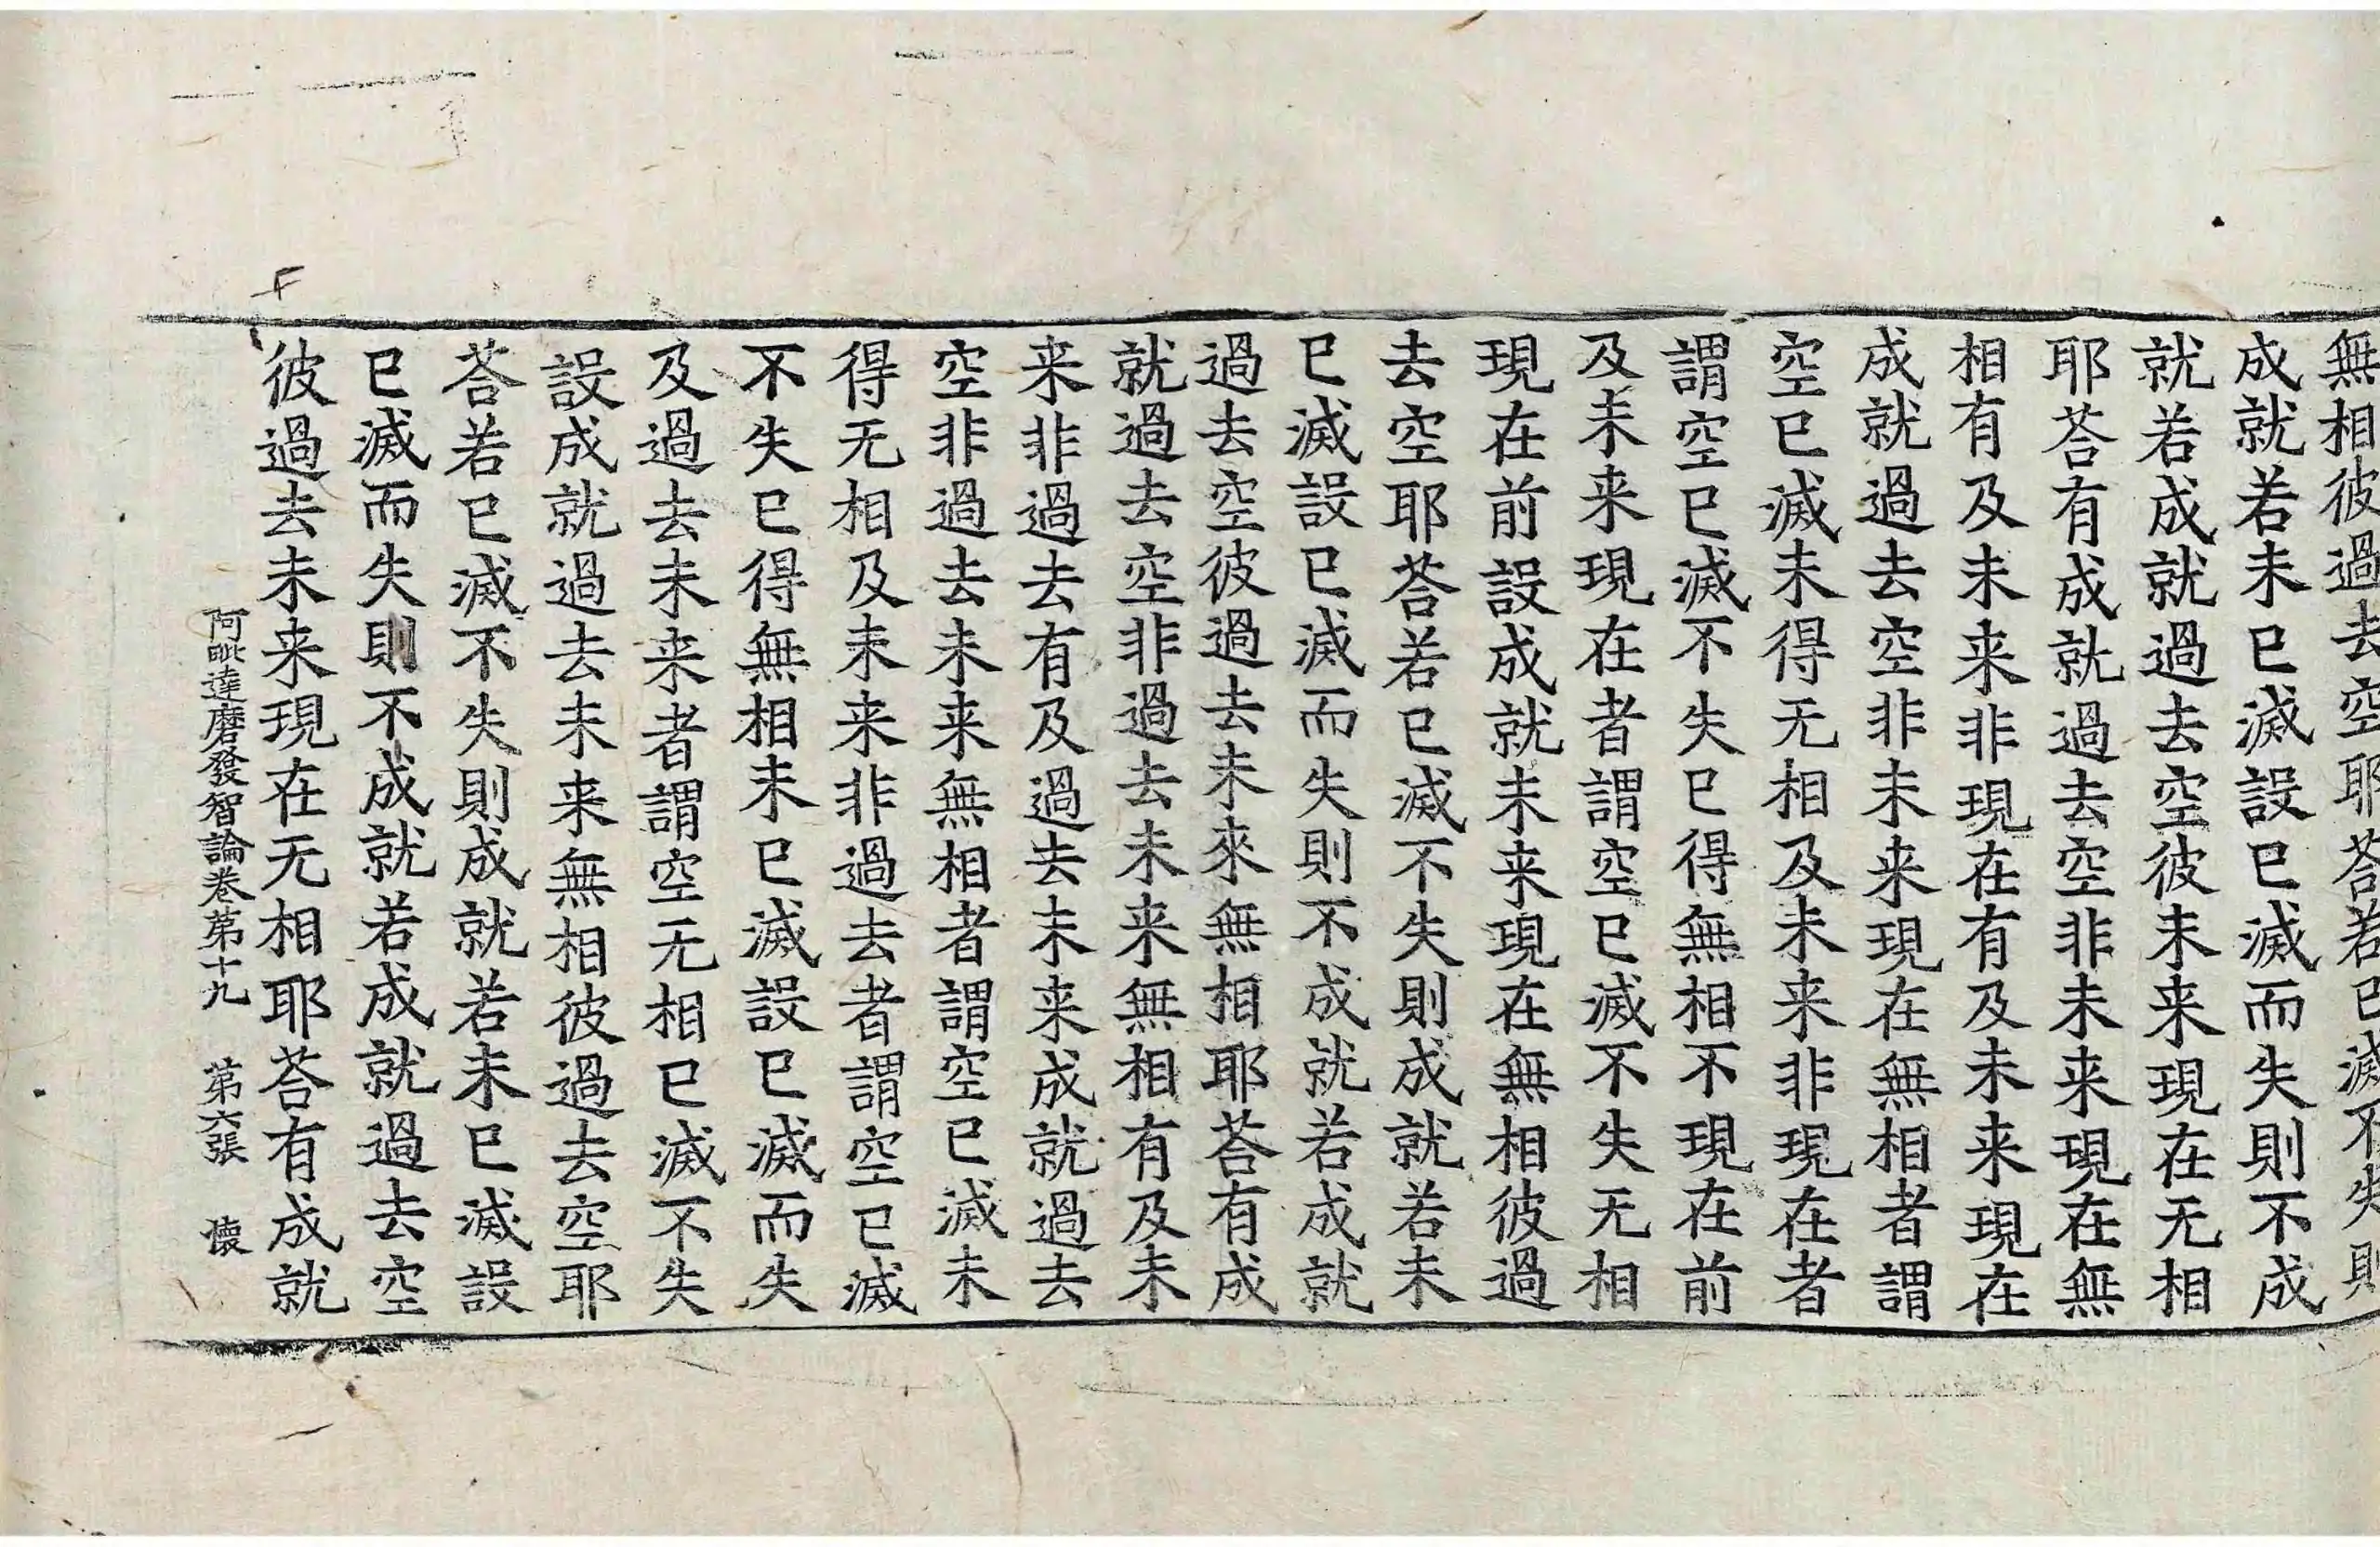 無相彼過去空耶荅若已滅不失則
成就若未已滅設已滅而失則不成
就若成就過去空彼未来現在无相
耶荅有成就過去空非未来現在無
相有及未来非現在有及未来現在
成就過去空非未来現在無相者謂
空已滅未得无相及未来非現在者
謂空已滅不失已得無相不現在前
及未来現在者謂空已滅不失无相
現在前設成就未来現在無相彼過
去空耶荅若已滅不失則成就若未
已滅設已滅而失則不成就若成就
過去空彼過去未來無相耶荅有成
就過去空非過去未来無相有及未
来非過去有及過去未来成就過去
空非過去未来無相者謂空已滅未
得无相及未来非過去者謂空已滅
不失已得無相未已滅設已滅而失
及過去未来者謂空无相已滅不失
設成就過去未来無相彼過去空耶
荅若已滅不失則成就若未已滅設
已滅而失則不成就若成就過去空
彼過去未来現在无相耶荅有成就
阿毗達磨發智論卷第十九 第六張 懐